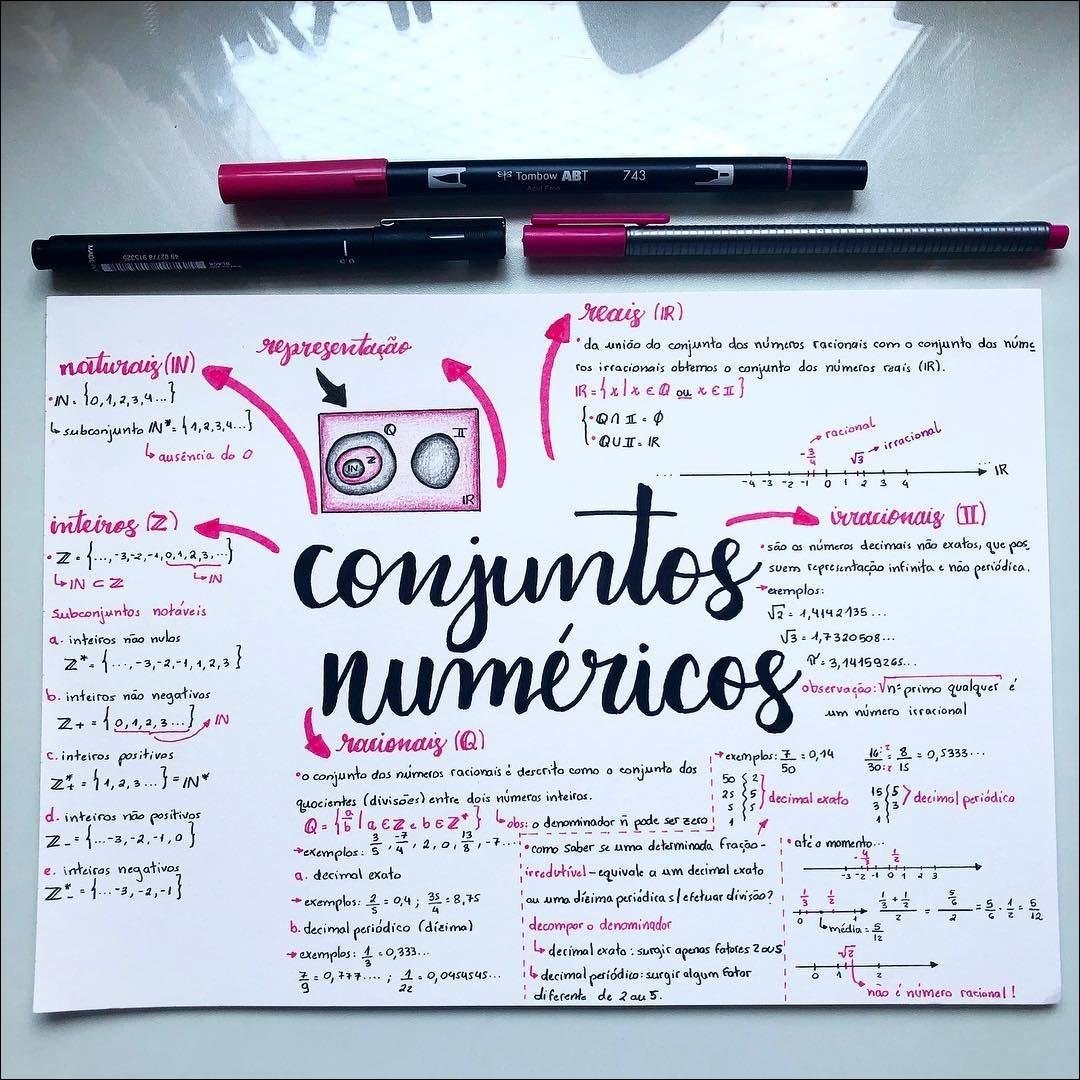 Tombow ABT 743
Acid Free
MADE IN
49 02778 915325
BLACK
0.5
conjuntos
numéricos
naturais (IN)
• IN = {0,1,2,3,4...}
↳ subconjunto IN* = {1,2,3,4...}
↳ ausência do 0
representação
Q
II
IN Z
IR
reais (IR)
• da união do conjunto dos números racionais com o conjunto dos núme
ros irracionais obtemos o conjunto dos números reais (IR).
IR = {x | x ∈ Q ou x ∈ II}
• Q ∩ II = ∅
• Q ∪ II = IR
→ racional
-3/4 √3 → irracional
... -4 -3 -2 -1 0 1 2 3 4 ... IR
inteiros (Z)
• Z = {...,-3,-2,-1,0,1,2,3,...}
↳ IN ⊂ Z ↳ IN
subconjuntos notáveis
a. inteiros não nulos
Z* = {...,-3,-2,-1,1,2,3}
b. inteiros não negativos
Z+ = {0,1,2,3...} → IN
c. inteiros positivos
Z*+ = {1,2,3...} = IN*
d. inteiros não positivos
Z- = {...-3,-2,-1,0}
e. inteiros negativos
Z*- = {...-3,-2,-1}
irracionais (II)
• são os números decimais não exatos, que pos
suem representação infinita e não periódica.
→ exemplos:
√2 = 1,4142135...
√3 = 1,7320508...
π = 3,14159265...
observação: √nº primo qualquer é
um número irracional
racionais (Q)
• o conjunto dos números racionais é descrito como o conjunto dos
quocientes (divisões) entre dois números inteiros.
Q = {a/b | a ∈ Z e b ∈ Z*} ↳ obs: o denominador ñ pode ser zero
→ exemplos: 3/5, -7/4, 2, 0, 13/8, -7...
a. decimal exato
→ exemplos: 2/5 = 0,4 ; 35/4 = 8,75
b. decimal periódico (dízima)
→ exemplos: 1/3 = 0,333...
7/9 = 0,777.... ; 1/22 = 0,0454545...
• como saber se uma determinada fração -
irredutível - equivale a um decimal exato
ou uma dízima periódica s/ efetuar divisão?
decompor o denominador
↳ decimal exato: surgir apenas fatores 2 ou 5
↳ decimal periódico: surgir algum fator
diferente de 2 ou 5.
→ exemplos: 7/50 = 0,14
50 2
25 5
5 5
1
decimal exato
16:2/30:2 = 8/15 = 0,5333...
15 5
3 3
1
decimal periódico
• até o momento...
-4/3 1/2
-3 -2 -1 0 1 2 3
1/3 1/2
0 1
↳ média = 5/12
1/3 + 1/2 / 2 = 5/6 / 2 = 5/6 · 1/2 = 5/12
√2
0 1 2
não é número racional!